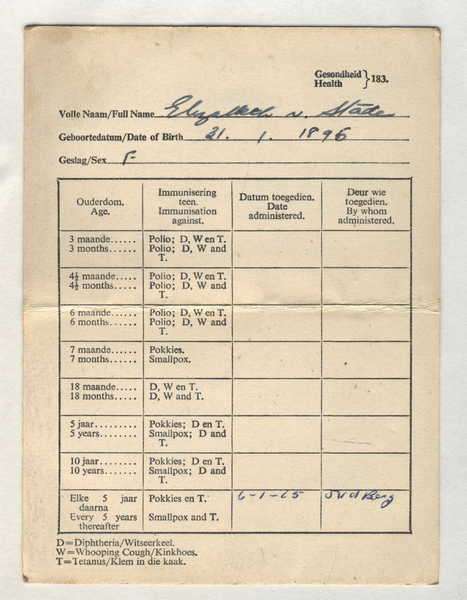 Gesondheid
Health } 183.
Volle Naam/Full Name Elizabeth v. Stade
Geboortedatum/Date of Birth 21. 1. 1896
Geslag/Sex F
Ouderdom.
Age.
Immunisering
teen.
Immunisation
against.
Datum toegedien.
Date
administered.
Deur wie
toegedien.
By whom
administered.
3 maande......
3 months......
Polio; D, W en T.
Polio; D, W and
T.
4½ maande.....
4½ months.....
Polio; D, W en T.
Polio; D, W and
T.
6 maande......
6 months......
Polio; D, W en T.
Polio; D, W and
T.
7 maande......
7 months......
Pokkies.
Smallpox.
18 maande.....
18 months.....
D, W en T.
D, W and T.
5 jaar.........
5 years........
Pokkies; D en T.
Smallpox; D and
T.
10 jaar........
10 years.......
Pokkies; D en T.
Smallpox; D and
T.
Elke 5 jaar
daarna
Every 5 years
thereafter
Pokkies en T.
Smallpox and T.
6-1-65
D=Diphtheria/Witseerkeel.
W=Whooping Cough/Kinkhoes.
T=Tetanus/Klem in die kaak.